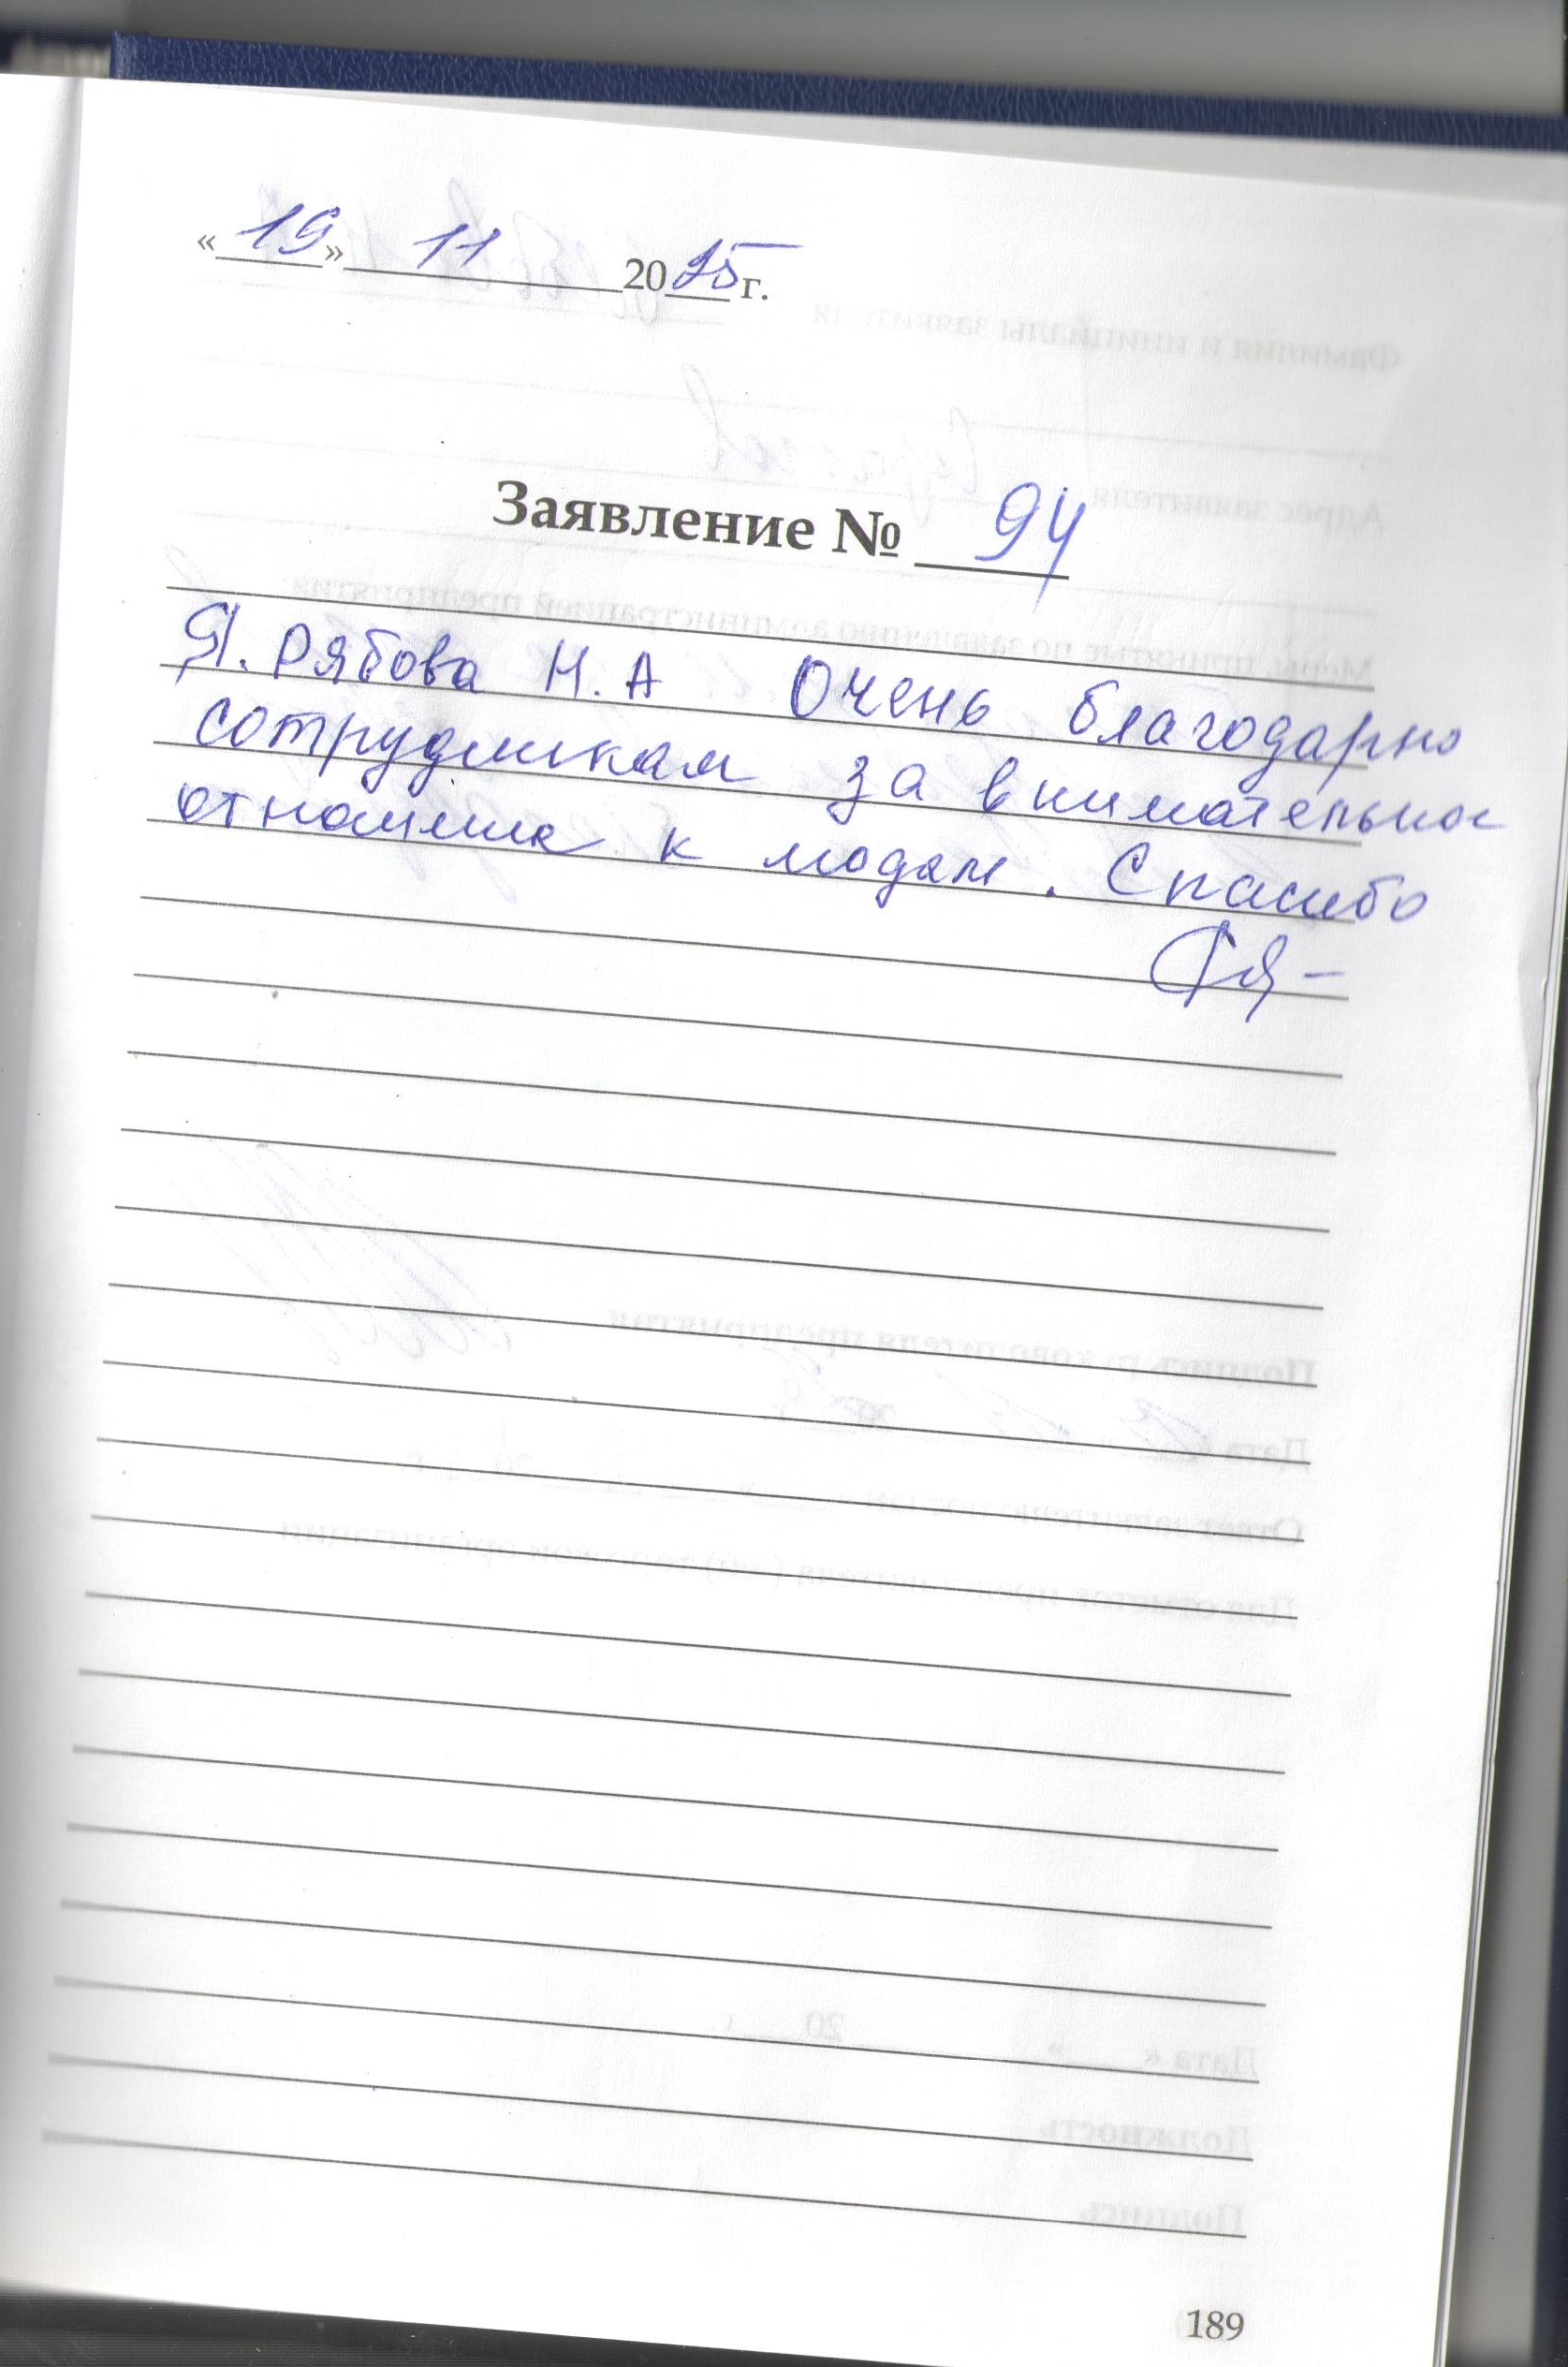 « 19 » 11 2025 г.
Заявление № 94
Я. Рябова Н. А Очень благодарно
сотрудникам за внимательное
отношение к людям. Спасибо
189